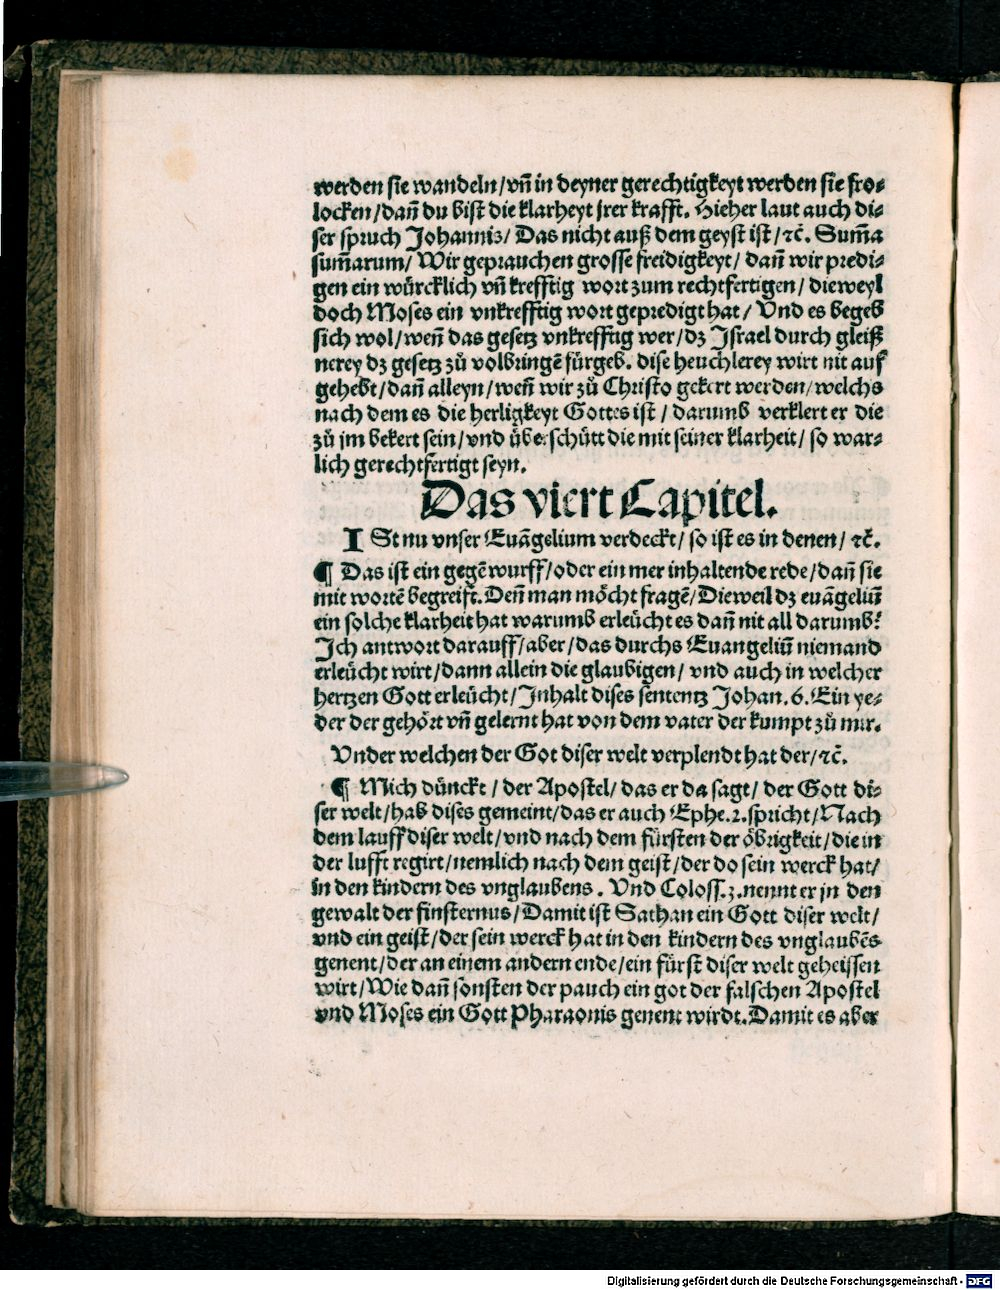 werden sie wandeln/vñ in deyner gerechtigkeyt werden sie fro⸗
locken/dañ du bist die klarheyt jrer krafft. Hieher laut auch di⸗
ser spruch Johannis/ Das nicht auß dem geyst ist/ ⁊c̃. Sum̃a
sum̃arum/ Wir geprauchen grosse freidigkeyt/ dañ wir predi⸗
gen ein würcklich vñ krefftig wort zum rechtfertigen/ dieweyl
doch Moses ein vnkrefftig wort gepredigt hat/ Vnd es begeb
sich wol/weñ das gesetz vnkrefftig wer/dz Israel durch gleiß
nerey dz gesetz zů volbringẽ fürgeb. dise heuchlerey wirt nit auf
gehebt/dañ alleyn/weñ wir zů Christo gekert werden/welchs
nach dem es die herligkeyt Gottes ist/ darumb verklert er die
zů jm bekert sein/vnd überschütt die mit seiner klarheit/ so war⸗
lich gerechtfertigt seyn.
Das viert Capitel.
ISt nu vnser Euãgelium verdeckt/ so ist es in denen/ ⁊c̃.
¶ Das ist ein gegẽwurff/oder ein mer inhaltende rede/dañ sie
mit wortẽ begreift. Deñ man möcht fragẽ/Dieweil dz euãgeliũ
ein solche klarheit hat warumb erleücht es dañ nit all darumb?
Ich antwort darauff/aber/das durchs Euangeliũ niemand
erleücht wirt/dann allein die glaubigen/ vnd auch in welcher
hertzen Gott erleücht/Inhalt dises sententz Johan. 6. Ein ye⸗
der der gehört vñ gelernt hat von dem vater der kumpt zů mir.
Vnder welchen der Got diser welt verplendt hat der/⁊c̃.
¶ Mich dünckt/ der Apostel/das er da sagt/ der Gott di⸗
ser welt/hab dises gemeint/das er auch Ephe.2.spricht/Nach
dem lauff diser welt/vnd nach dem fürsten der öbrigkeit/die in
der lufft regirt/nemlich nach dem geist/der do sein werck hat/
in den kindern des vnglaubens. Vnd Coloss.3.nennt er jn den
gewalt der finsternus/Damit ist Sathan ein Gott diser welt/
vnd ein geist/der sein werck hat in den kindern des vnglaubẽs
genent/der an einem andern ende/ein fürst diser welt geheissen
wirt/Wie dañ sonsten der pauch ein got der falschen Apostel
vnd Moses ein Gott Pharaonis genent wirdt. Damit es aber
Digitalisierung gefördert durch die Deutsche Forschungsgemeinschaft - DFG